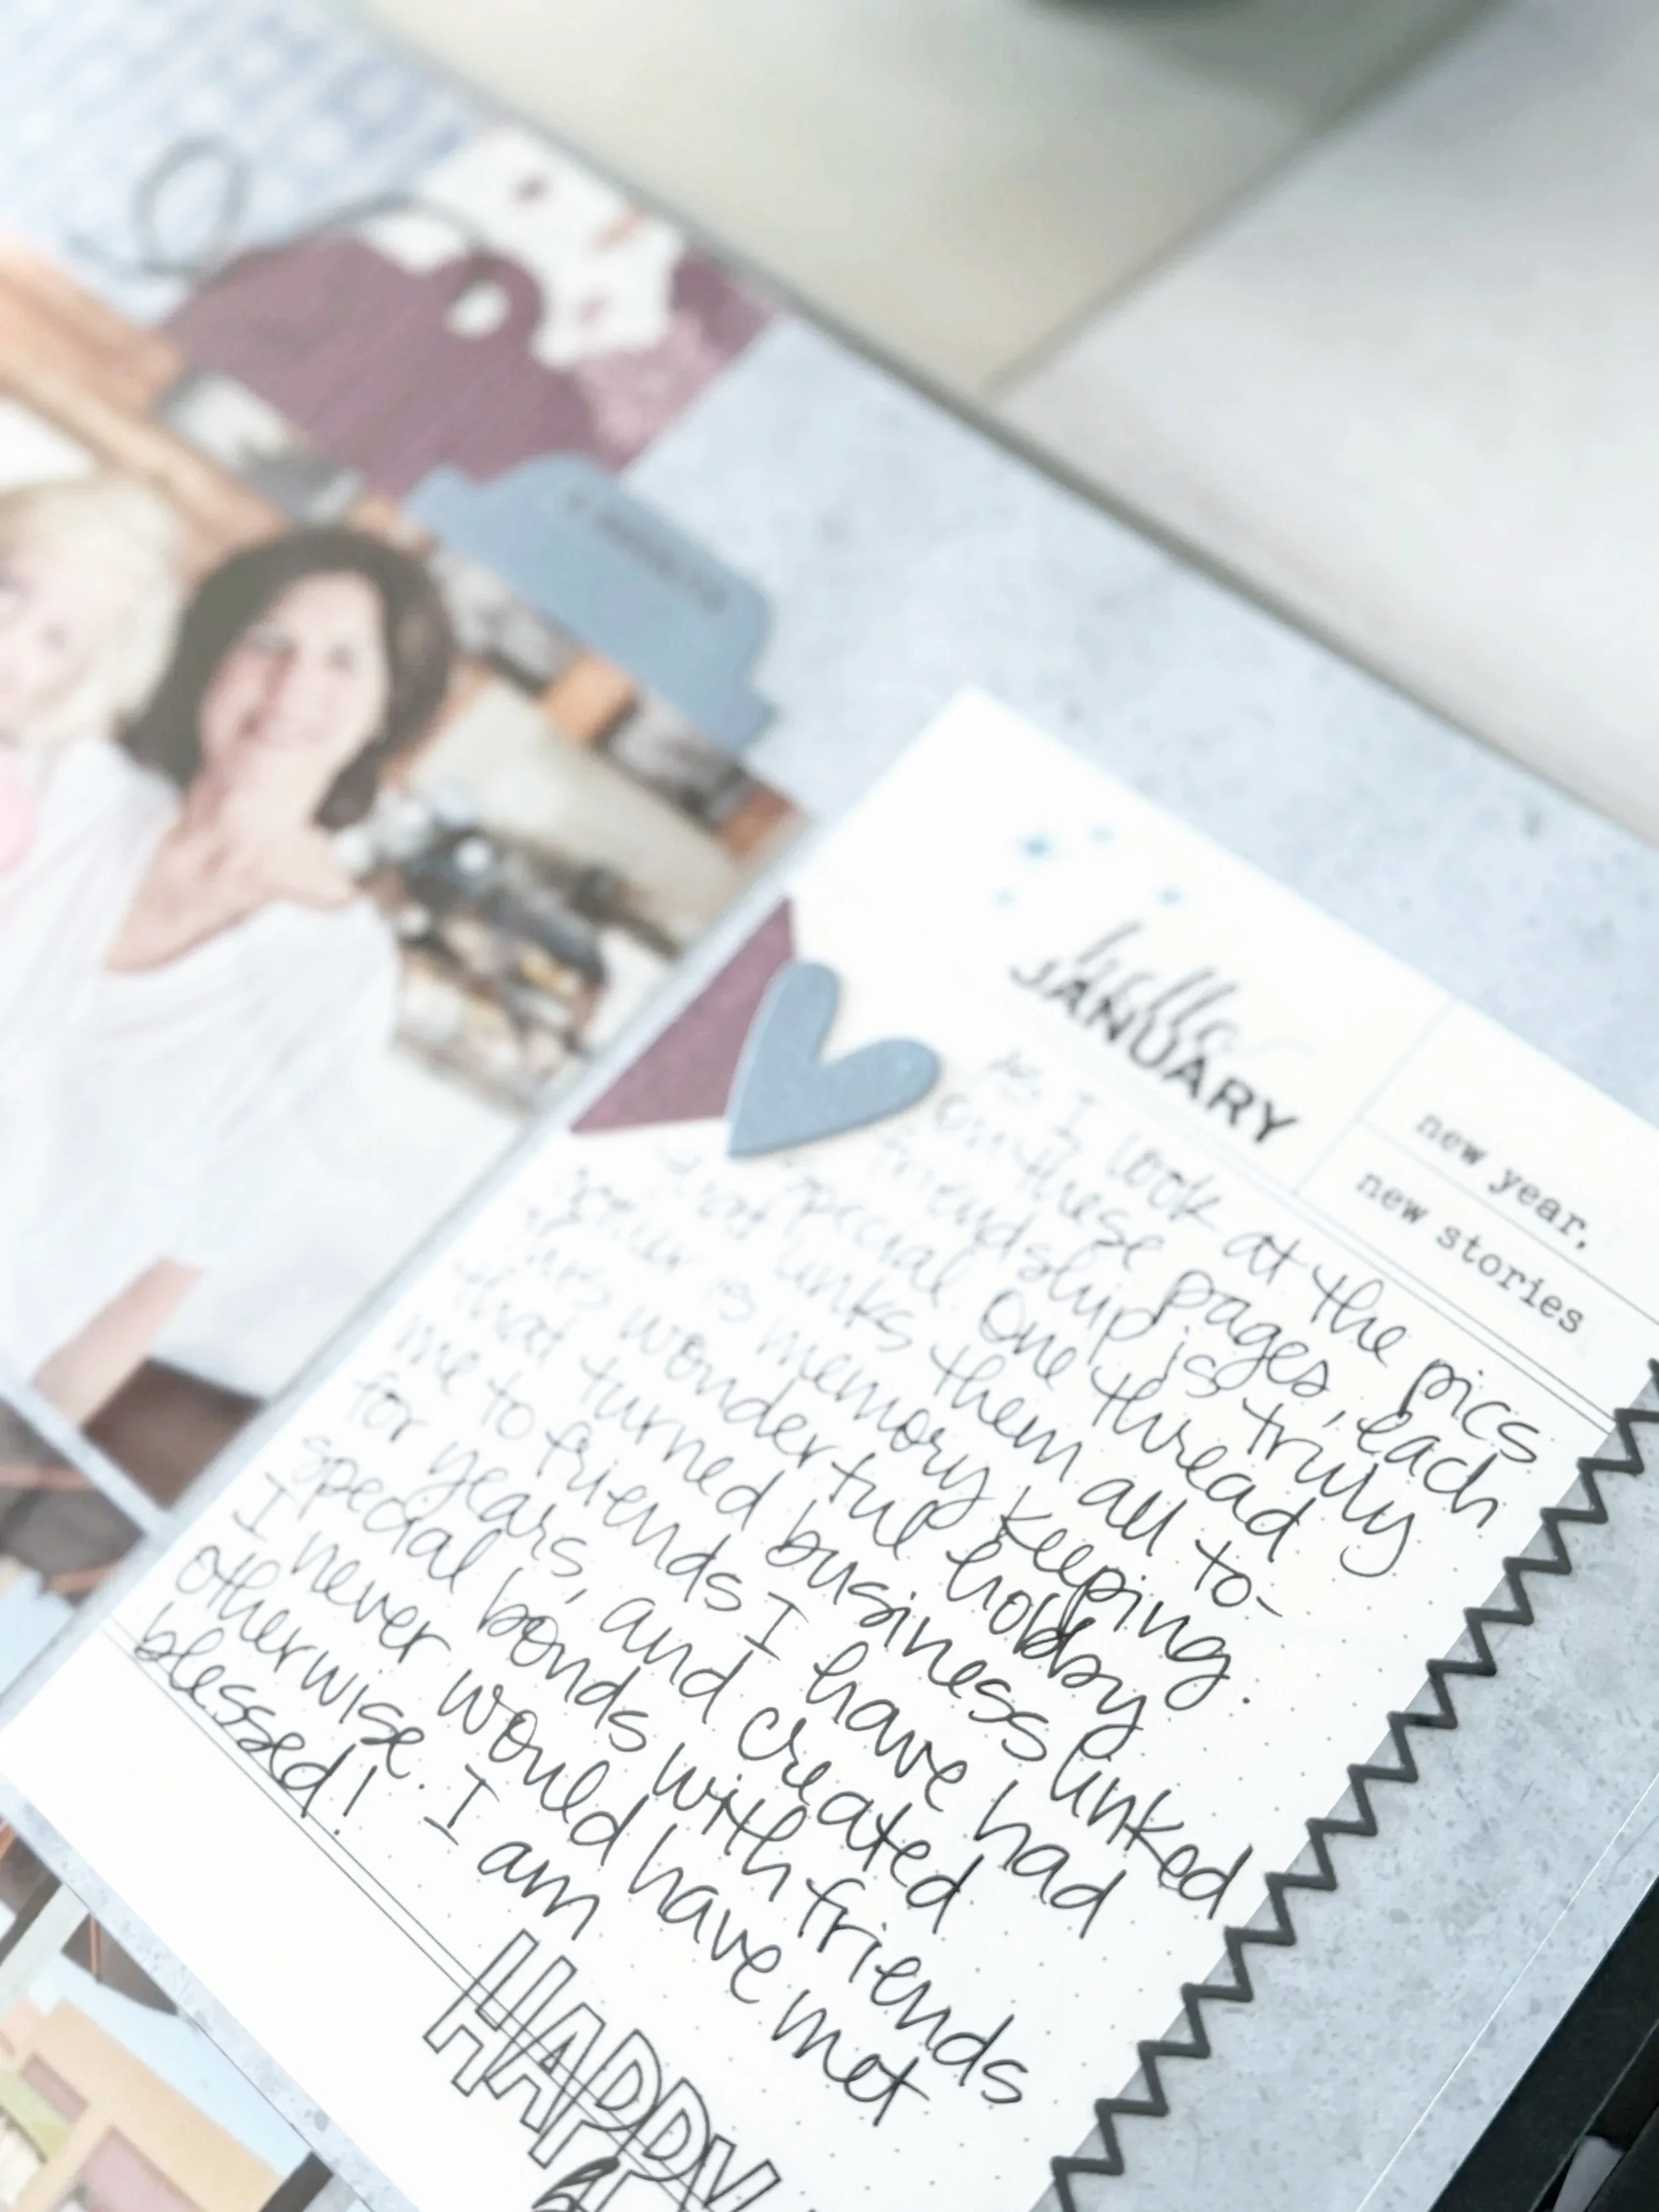 hello
JANUARY
new year,
new stories
As I look at the pics
on these pages, each
friendship is truly
special. One thread
that links them all to-
gether is memory keeping.
This wonderful hobby
that turned business linked
me to friends I have had
for years, and created
special bonds with friends
I never would have met
otherwise. I am
blessed!
HAPPY